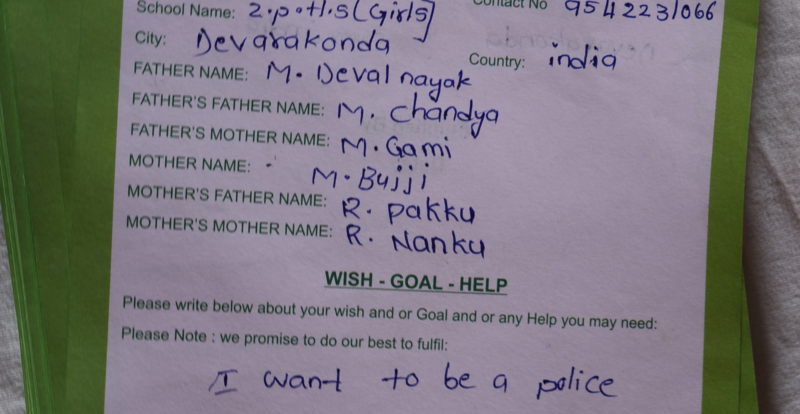 School Name: Z.P.H.S (Girls) Contact No 9542231066
City: Devarakonda Country: india
FATHER NAME: M. Deval nayak
FATHER'S FATHER NAME: M. Chandya
FATHER'S MOTHER NAME: M. Gami
MOTHER NAME: M. Bujji
MOTHER'S FATHER NAME: R. Pakku
MOTHER'S MOTHER NAME: R. Nanku
WISH - GOAL - HELP
Please write below about your wish and or Goal and or any Help you may need:
Please Note : we promise to do our best to fulfil:
I want to be a police